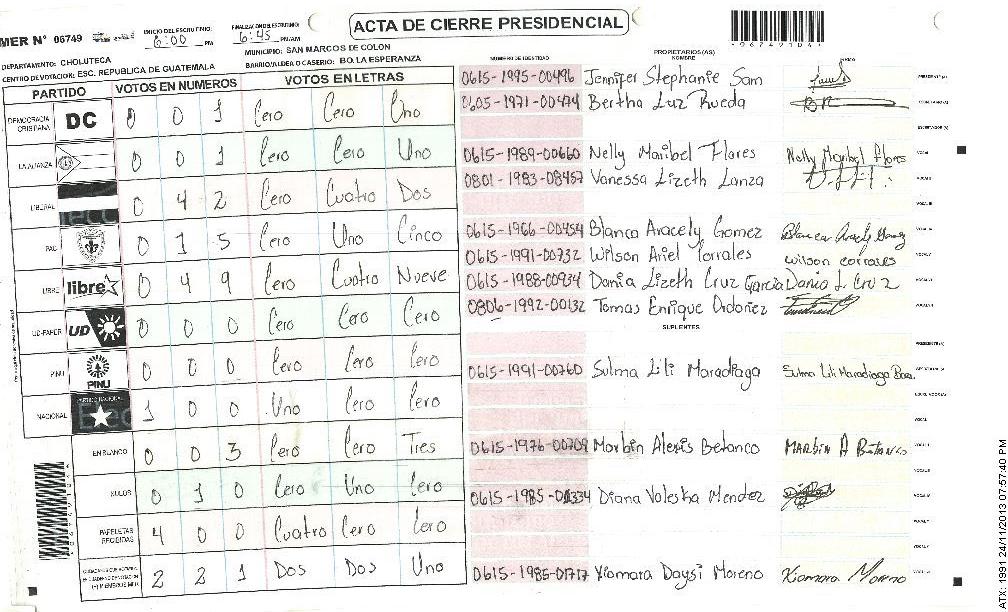 ACTA DE CIERRE PRESIDENCIAL
MER N° 06749
INICIO DEL ESCRUTINIO: 6:00 PM
FINALIZACION DEL ESCRUTINIO: 6:45 PM/AM
DEPARTAMENTO: CHOLUTECA
MUNICIPIO: SAN MARCOS DE COLON
CENTRO DE VOTACION: ESC. REPUBLICA DE GUATEMALA
BARRIO/ALDEA O CASERIO: BO.LA ESPERANZA
PARTIDO VOTOS EN NUMEROS VOTOS EN LETRAS
DEMOCRACIA CRISTIANA DC 0 0 1 Cero Cero Uno
LA ALIANZA 0 0 1 Cero Cero Uno
LIBERAL 0 4 2 Cero Cuatro Dos
PAC 0 1 5 Cero Uno Cinco
LIBRE libre 0 4 9 Cero Cuatro Nueve
UD-FAPER UD 0 0 0 Cero Cero Cero
PINU PINU 0 0 0 Cero Cero Cero
NACIONAL PARTIDO NACIONAL 1 0 0 Uno Cero Cero
EN BLANCO 0 0 3 Cero Cero Tres
NULOS 0 1 0 Cero Uno Cero
PAPELETAS RECIBIDAS 4 0 0 Cuatro Cero Cero
2 2 1 Dos Dos Uno
NUMERO DE IDENTIDAD
PROPIETARIOS(AS)
NOMBRE
0615-1995-00496 Jennifer Stephanie Sam
0605-1971-00474 Bertha Luz Rueda BR
0615-1989-00660 Nelly Maribel Flores Nelly Maribel Flores
0801-1983-08457 Vanessa Lizeth Lanza
0615-1966-00454 Blanca Aracely Gomez Blanca Aracely Gomez
0615-1991-00732 Wilson Ariel Corrales wilson corrales
0615-1988-00934 Dania Lizeth Cruz Garcia Dania L Cruz
0806-1992-00132 Tomas Enrique Ordoñez
SUPLENTES
0615-1991-00760 Sulma Lili Maradiaga Sulma Lili Maradiaga
0615-1976-00709 Marbin Alexis Betanco MARBIN A Betanco
0615-1985-00334 Diana Valeska Mendez
0615-1985-01717 Xiomara Daysi Moreno Xiomara Moreno
ATX: 1991 24/11/2013 07:57:40 PM